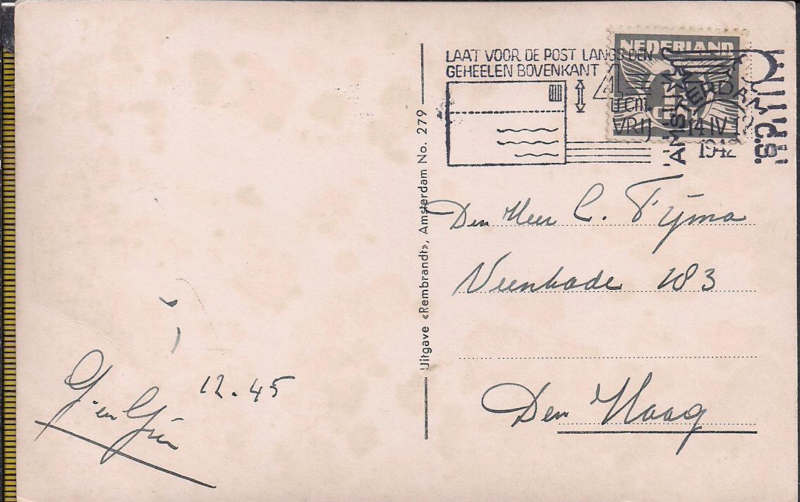 LAAT VOOR DE POST LANGS DEN
GEHEELEN BOVENKANT 4
VRIJ
NEDERLAND
AMSTERDAM C.S.
14 IV
1942
Den Heer C. Fijma
Veenkade 103
Den Haag
Uitgave «Rembrandt», Amsterdam No. 279
12.45
G. en